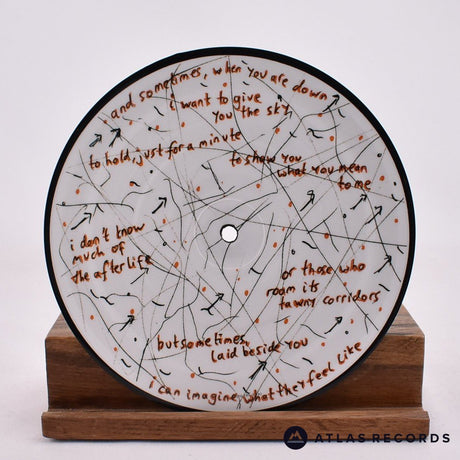 and sometimes, when you are down
i want to give
you the sky,
to hold, just for a minute
to show you
what you mean
to me
i don't know
much of
the afterlife
or those who
roam its
tawny corridors
but sometimes,
laid beside you
i can imagine what they feel like
ATLAS RECORDS